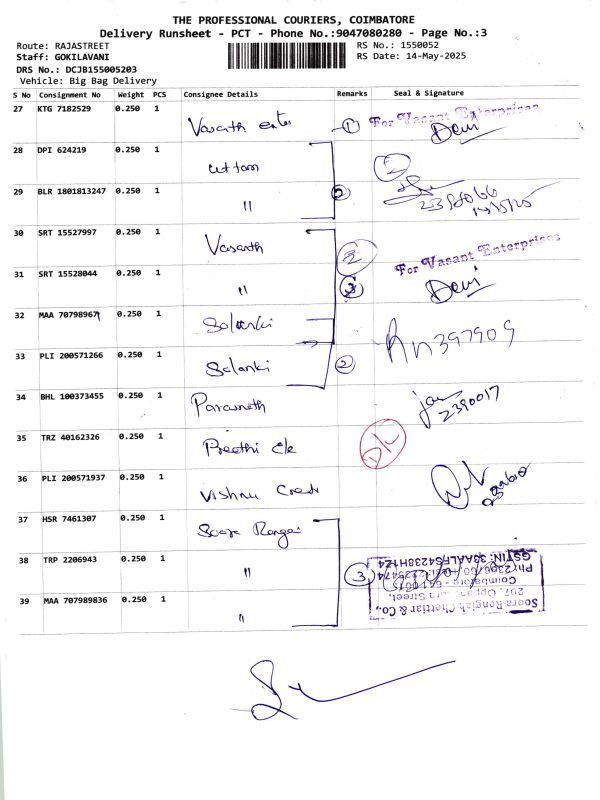 THE PROFESSIONAL COURIERS, COIMBATORE
Delivery Runsheet - PCT - Phone No.:9047080280 - Page No.:3
Route: RAJASTREET
RS No.: 1550052
Staff: GOKILAVANI
RS Date: 14-May-2025
DRS No.: DCJB155005203
Vehicle: Big Bag Delivery
S No Consignment No Weight PCS Consignee Details Remarks Seal & Signature
27 KTG 7182529 0.250 1 Vasanth 1 For Vasant Enterprises
Devi
28 DPI 624219 0.250 1 uttam 2
29 BLR 1801813247 0.250 1 " 2
30 SRT 15527997 0.250 1 Vasanth 2 For Vasant Enterprises
31 SRT 15528044 0.250 1 " 3 Devi
32 MAA 707989671 0.250 1 Solanki
33 PLI 200571266 0.250 1 Solanki 2
34 BHL 100373455 0.250 1 2390017
35 TRZ 40162326 0.250 1 Preethi D/C
36 PLI 200571937 0.250 1 Vishnu
37 HSR 7461307 0.250 1 Soora Rangai
38 TRP 2206943 0.250 1 " 3
39 MAA 707989836 0.250 1 "
Soora Rengiah Chettiar & Co.,
Coimbatore
GSTIN: 33AALFS4238H1Z4